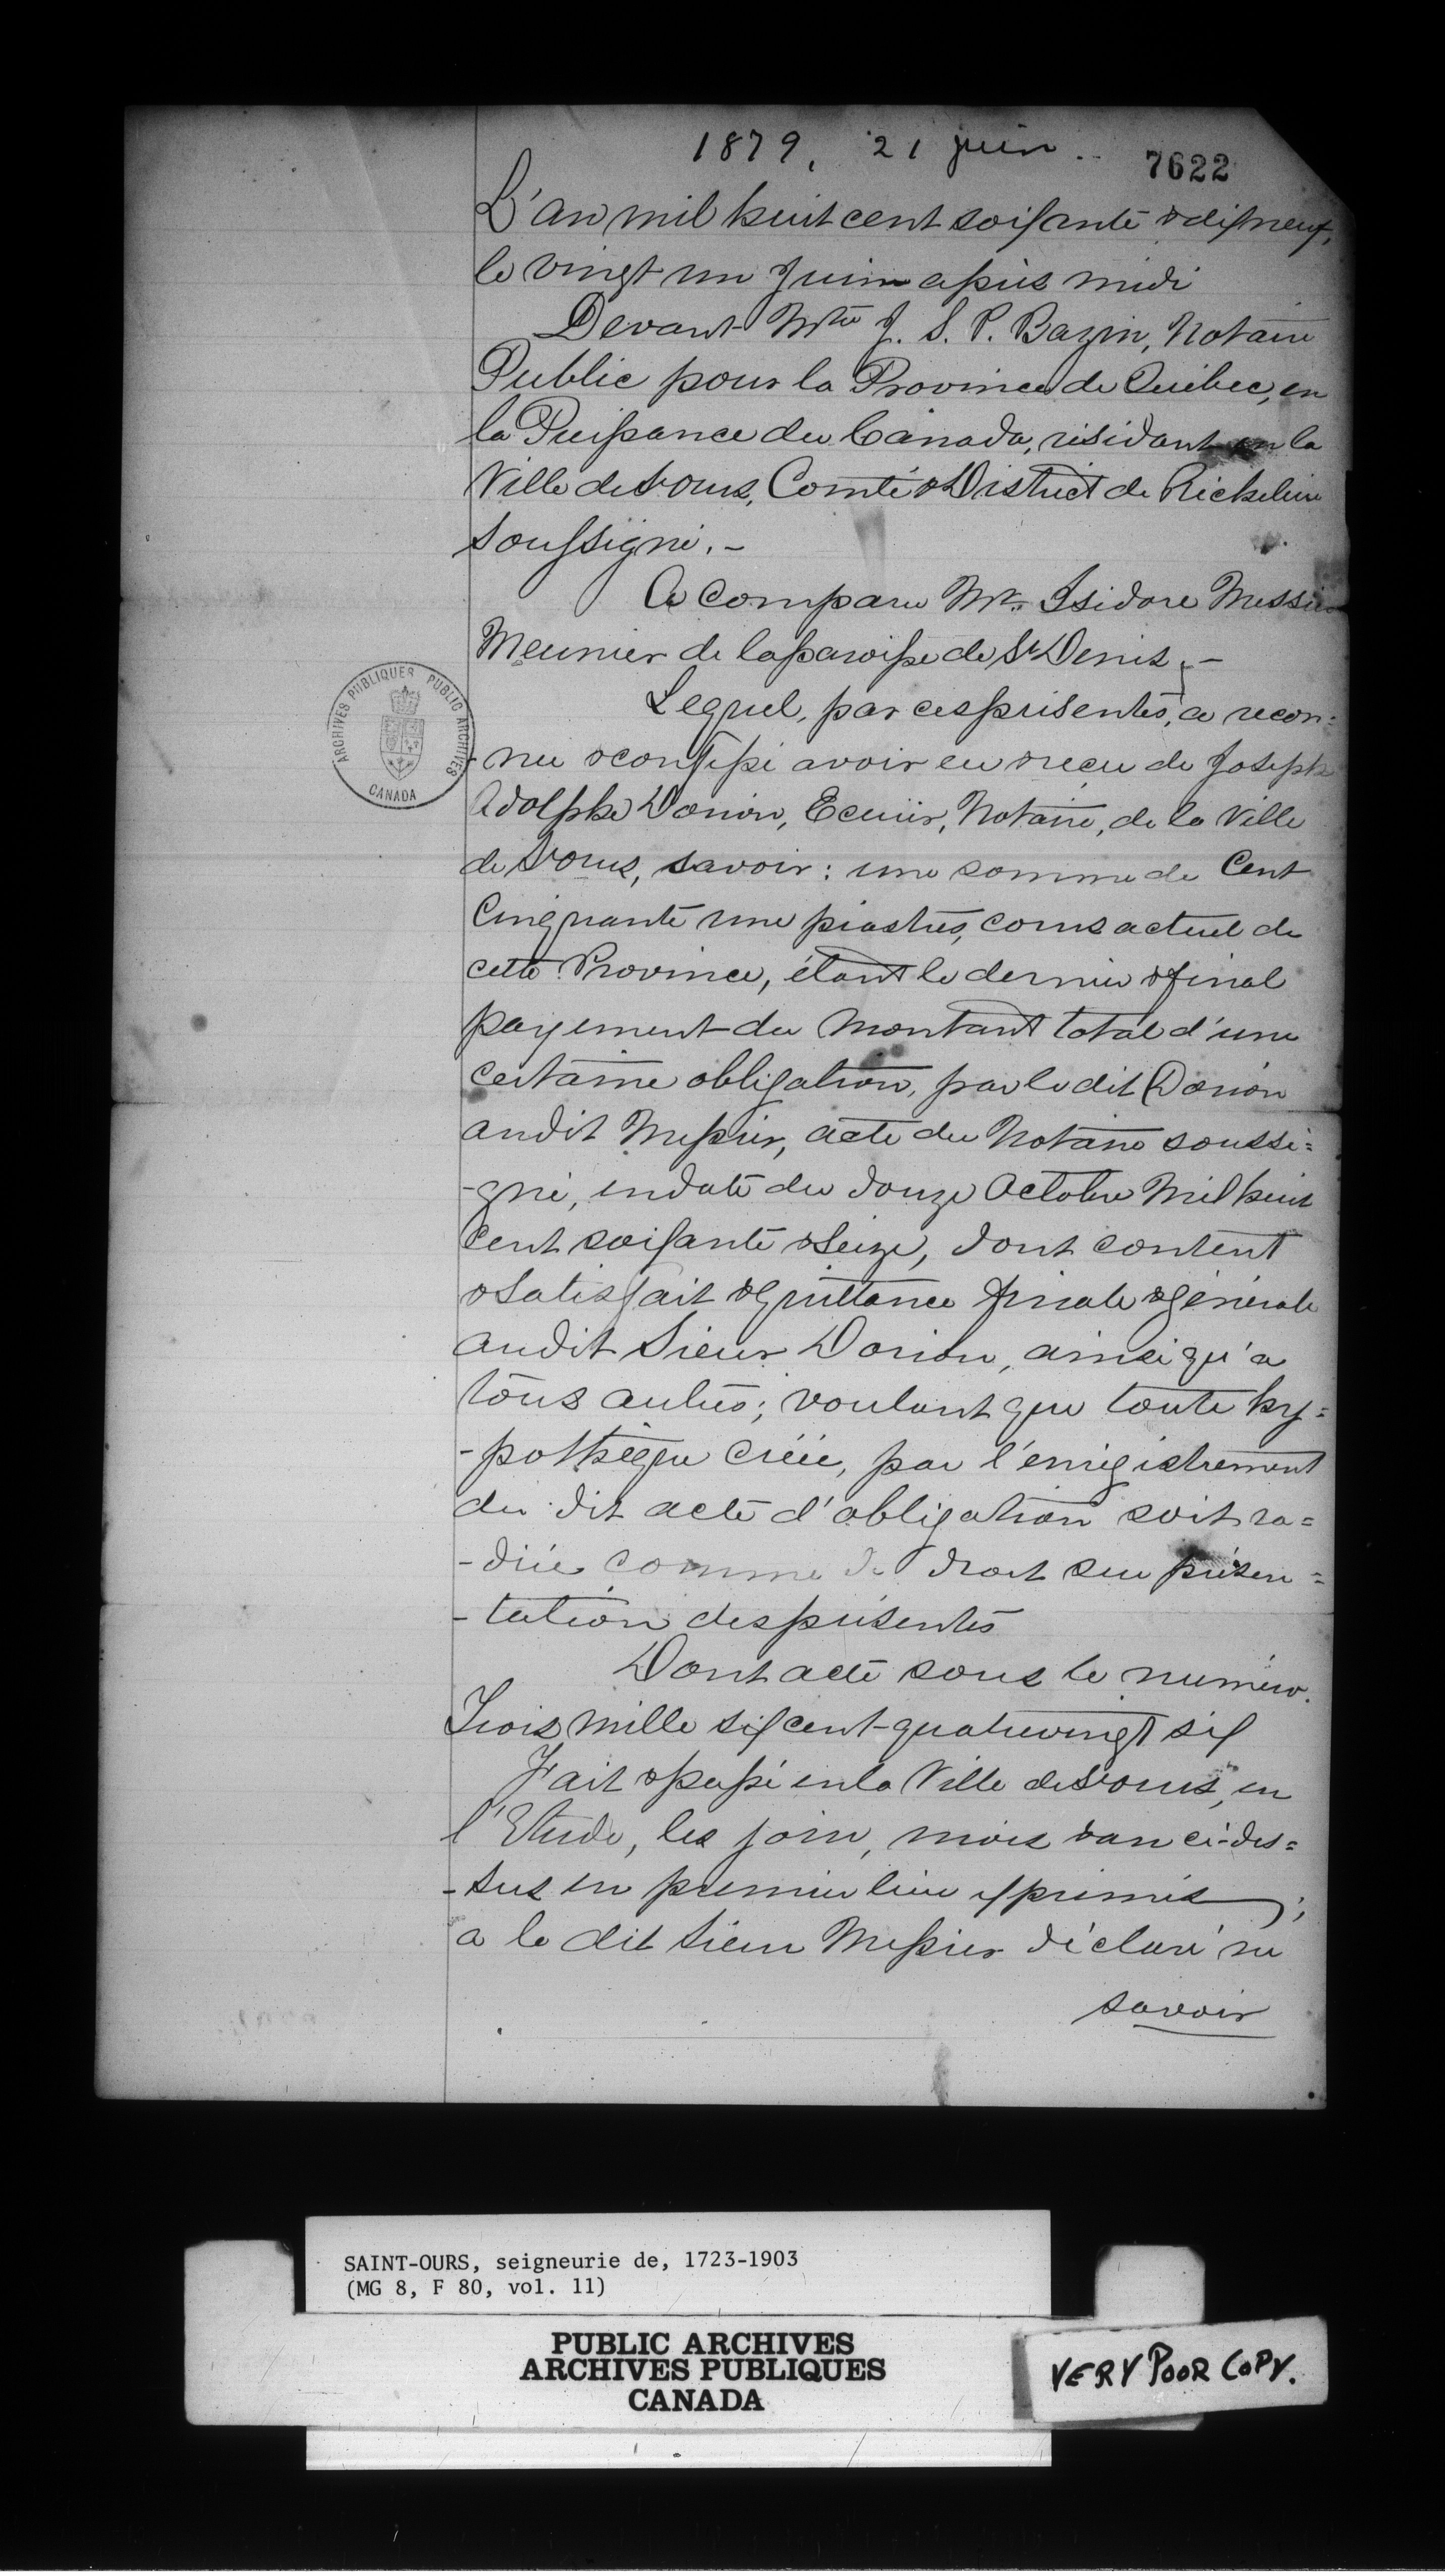 1879, 21 juin..
7622
L'an mil huit cent soixante & dix neuf,
le vingt un Juin après midi
Devant Mtre J. S. P. Bazin, Notaire
Public pour la Province de Québec, en
la Puissance du Canada, résidant en la
Ville de St Ours, Comté & District de Richelieu
soussigné. -
A Comparu Mr. Isidore Messier
Meunier de la paroisse de St Denis, -
Lequel, par ces présentes, a recon=
-nu & confessé avoir eu & reçu de Joseph
Adolphe Dorion, Ecuier, Notaire, de la Ville
de St Ours, savoir: une somme de Cent
Cinquante une piastres, cours actuel de
cette Province, étant le dernier & final
payement du Montant total d'une
certaine obligation, par le dit Dorion
audit Messier, acte du Notaire soussi=
-gné, en date du douze Octobre Mil huit
Cent soixante & Seize, dont content
& Satisfait & Quittance finale & générale
audit Sieur Dorion, ainsi qu'a
tous autres; voulant que toute hy=
-pothèque créée, par l'enregistrement
du dit acte d'obligation soit ra=
-diée comme de droit sur présen=
-tation des présentes
Dont acte sous le numéro
Trois mille six cent-quatrevingt six
Fait & passé en la Ville de St Ours, en
l'Etude, les jour, mois & an ci-des=
-sus en premier lieu exprimés;
a le dit Sieur Messier déclaré ne
savoir
ARCHIVES PUBLIQUES PUBLIC ARCHIVES
CANADA
SAINT-OURS, seigneurie de, 1723-1903
(MG 8, F 80, vol. 11)
PUBLIC ARCHIVES
ARCHIVES PUBLIQUES
CANADA
VERY POOR COPY.